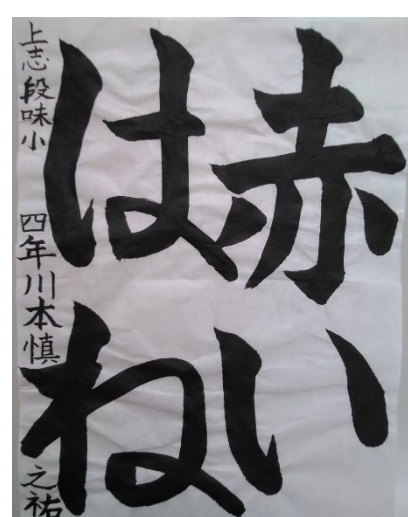 赤い
はね
上志段味小 四年川本慎之祐